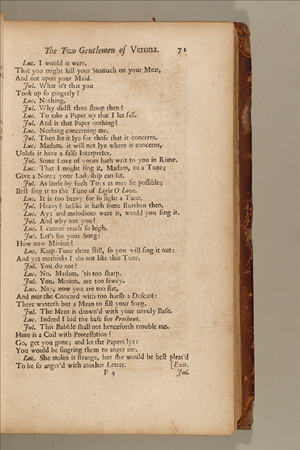 The Two Gentlemen of Verona.
Luc. I would it were,
That you might kill your Stomach on your Meat,
And not upon your Maid.
Jul. What is't that you
Took up so gingerly?
Luc. Nothing.
Jul. Why didst thou stoop then?
Luc. To take a Paper up that I let fall.
Jul. And is that Paper nothing?
Luc. Nothing concerning me.
Jul. Then let it lye for those that it concerns.
Luc. Madam, it will not lye where it concerns,
Unless it have a false Interpreter.
Jul. Some Love of yours hath writ to you in Rime.
Luc. That I might sing it, Madam, to a Tune;
Give a Note; your Ladyship can set.
Jul. As little by such Toys as may be possible;
Best sing it to the Tune of Light O Love.
Luc. It is too heavy for so light a Tune.
Jul. Heavy? belike it hath some Burthen then.
Luc. Ay; and melodious were it, would you sing it.
Jul. And why not you?
Luc. I cannot reach so high.
Jul. Let's see your Song:
How now Minion?
Luc. Keep Tune there still, so you will sing it out:
And yet methinks I do not like this Tune.
Jul. You do not?
Luc. No, Madam, 'tis too sharp.
Jul. You, Minion, are too sawcy.
Luc. Nay, now you are too flat,
And mar the Concord with too harsh a Descant:
There wanteth but a Mean to fill your Song.
Jul. The Mean is drown'd with your unruly Base.
Luc. Indeed I bid the base for Protheus.
Jul. This Babble shall not henceforth trouble me.
Here is a Coil with Protestation!
Go, get you gone; and let the Papers lye:
You would be fingring them to anger me.
Luc. She makes it strange, but she would be best pleas'd
To be so anger'd with another Letter. [Exit.
F 4 Jul.